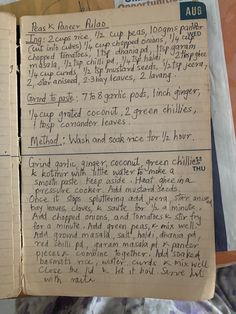 Opportunities
AUG
Peas & Paneer Pulao
Ing: 2 cups rice, 1/2 cup peas, 100gms paneer
(cut into cubes) 1/4 cup chopped onions, 1/4 cup
chopped tomatoes, 1 tsp dhania pd, 1 tsp garam
masala, 1/2 tsp chilli pd, 1/4 tsp haldi,
1/4 cup curds, 1/2 tsp mustard seeds, 1/2 tsp jeera,
2 star aniseed, 2-3 bay leaves, 2 lavang.
Grind to paste: 7 to 8 garlic pods, 1 inch ginger,
1/4 cup grated coconut, 2 green chillies,
1 tbsp coriander leaves.
Method: Wash and soak rice for 1/2 hour.
Grind garlic, ginger, coconut, green chillies
THU
& kothmir with little water to make a
smooth paste. Keep aside. Heat ghee in a
pressure cooker. Add mustard seeds.
Once it stops spluttering add jeera, star anise,
bay leaves, cloves & saute for 1/2 a minute.
Add chopped onions, and tomatoes & stir fry
for a minute. Add green peas, & mix well.
Add ground masala, salt, haldi, dhania pd
red chilli pd, garam masala pd & paneer
pieces & combine together. Add soaked
basmati rice, water, curds & mix well
Close the lid & let it boil. Serve hot
with raita.